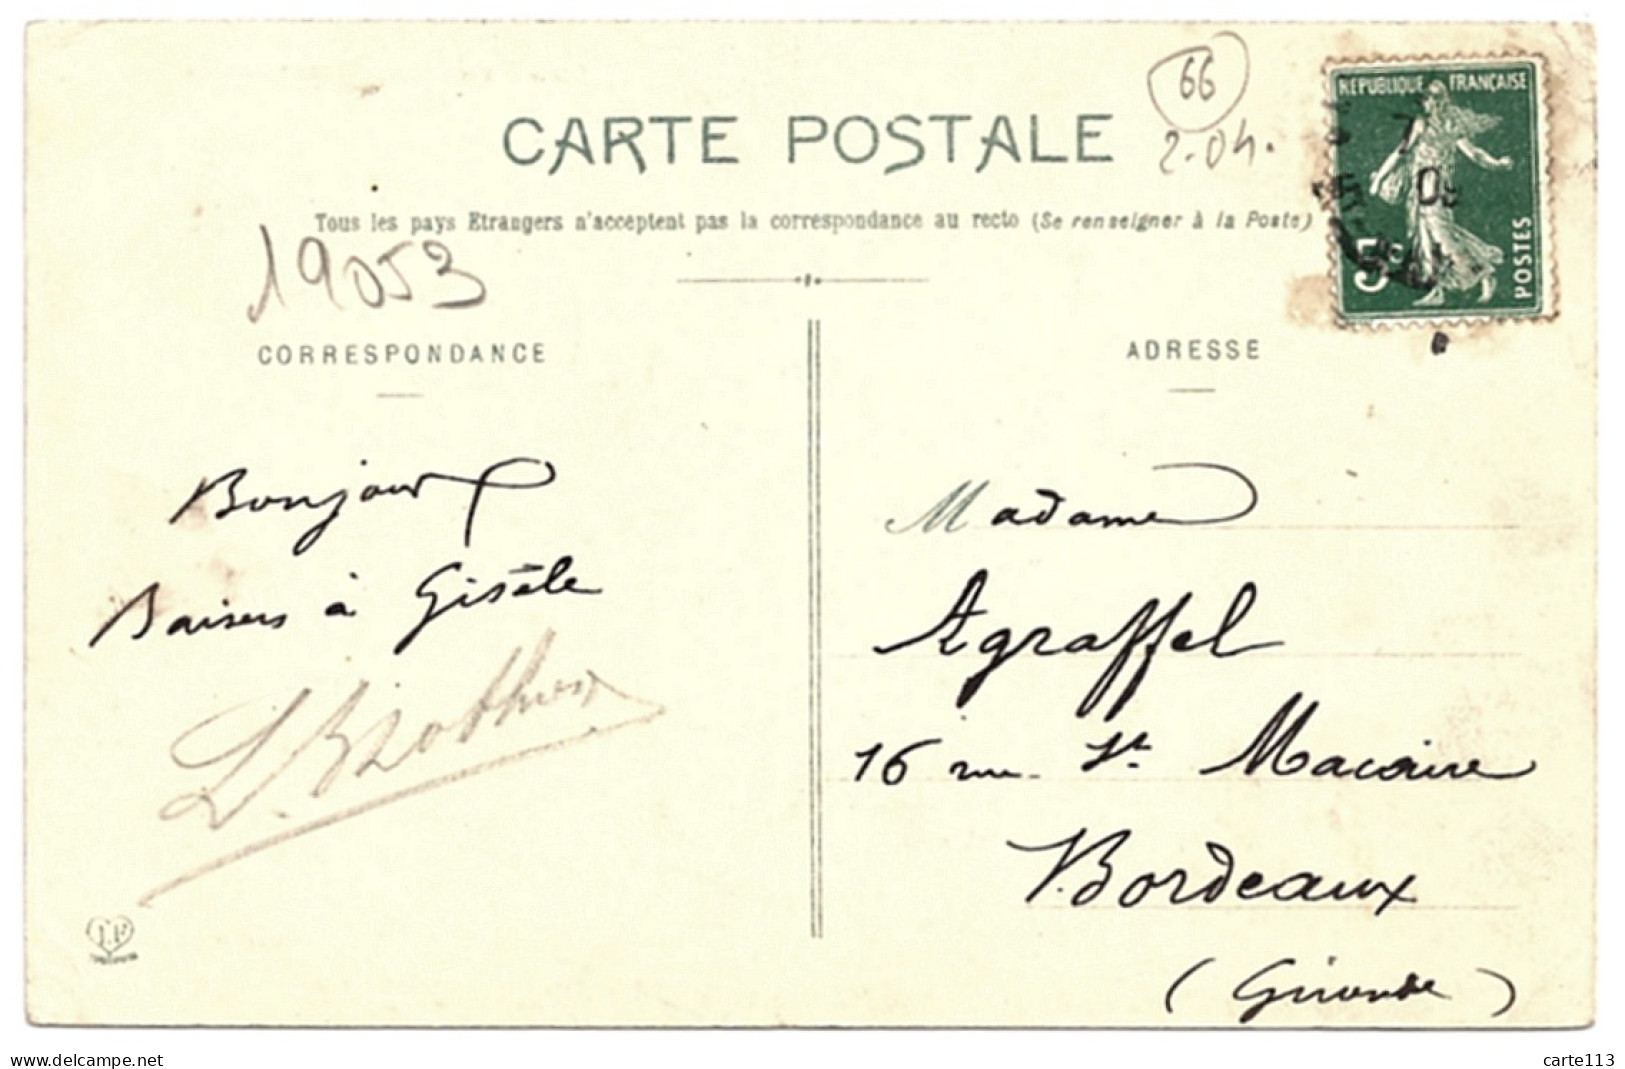 66
2-04.
CARTE POSTALE
RÉPUBLIQUE FRANÇAISE
5c
POSTES
7
Tous les pays Etrangers n'acceptent pas la correspondance au recto (Se renseigner à la Poste)
19053
CORRESPONDANCE
Bonjour
Baisers à Gisèle
ADRESSE
Madame
Agraffel
16 rue St Macaire
Bordeaux
(Gironde)
delcampe.net
carte113